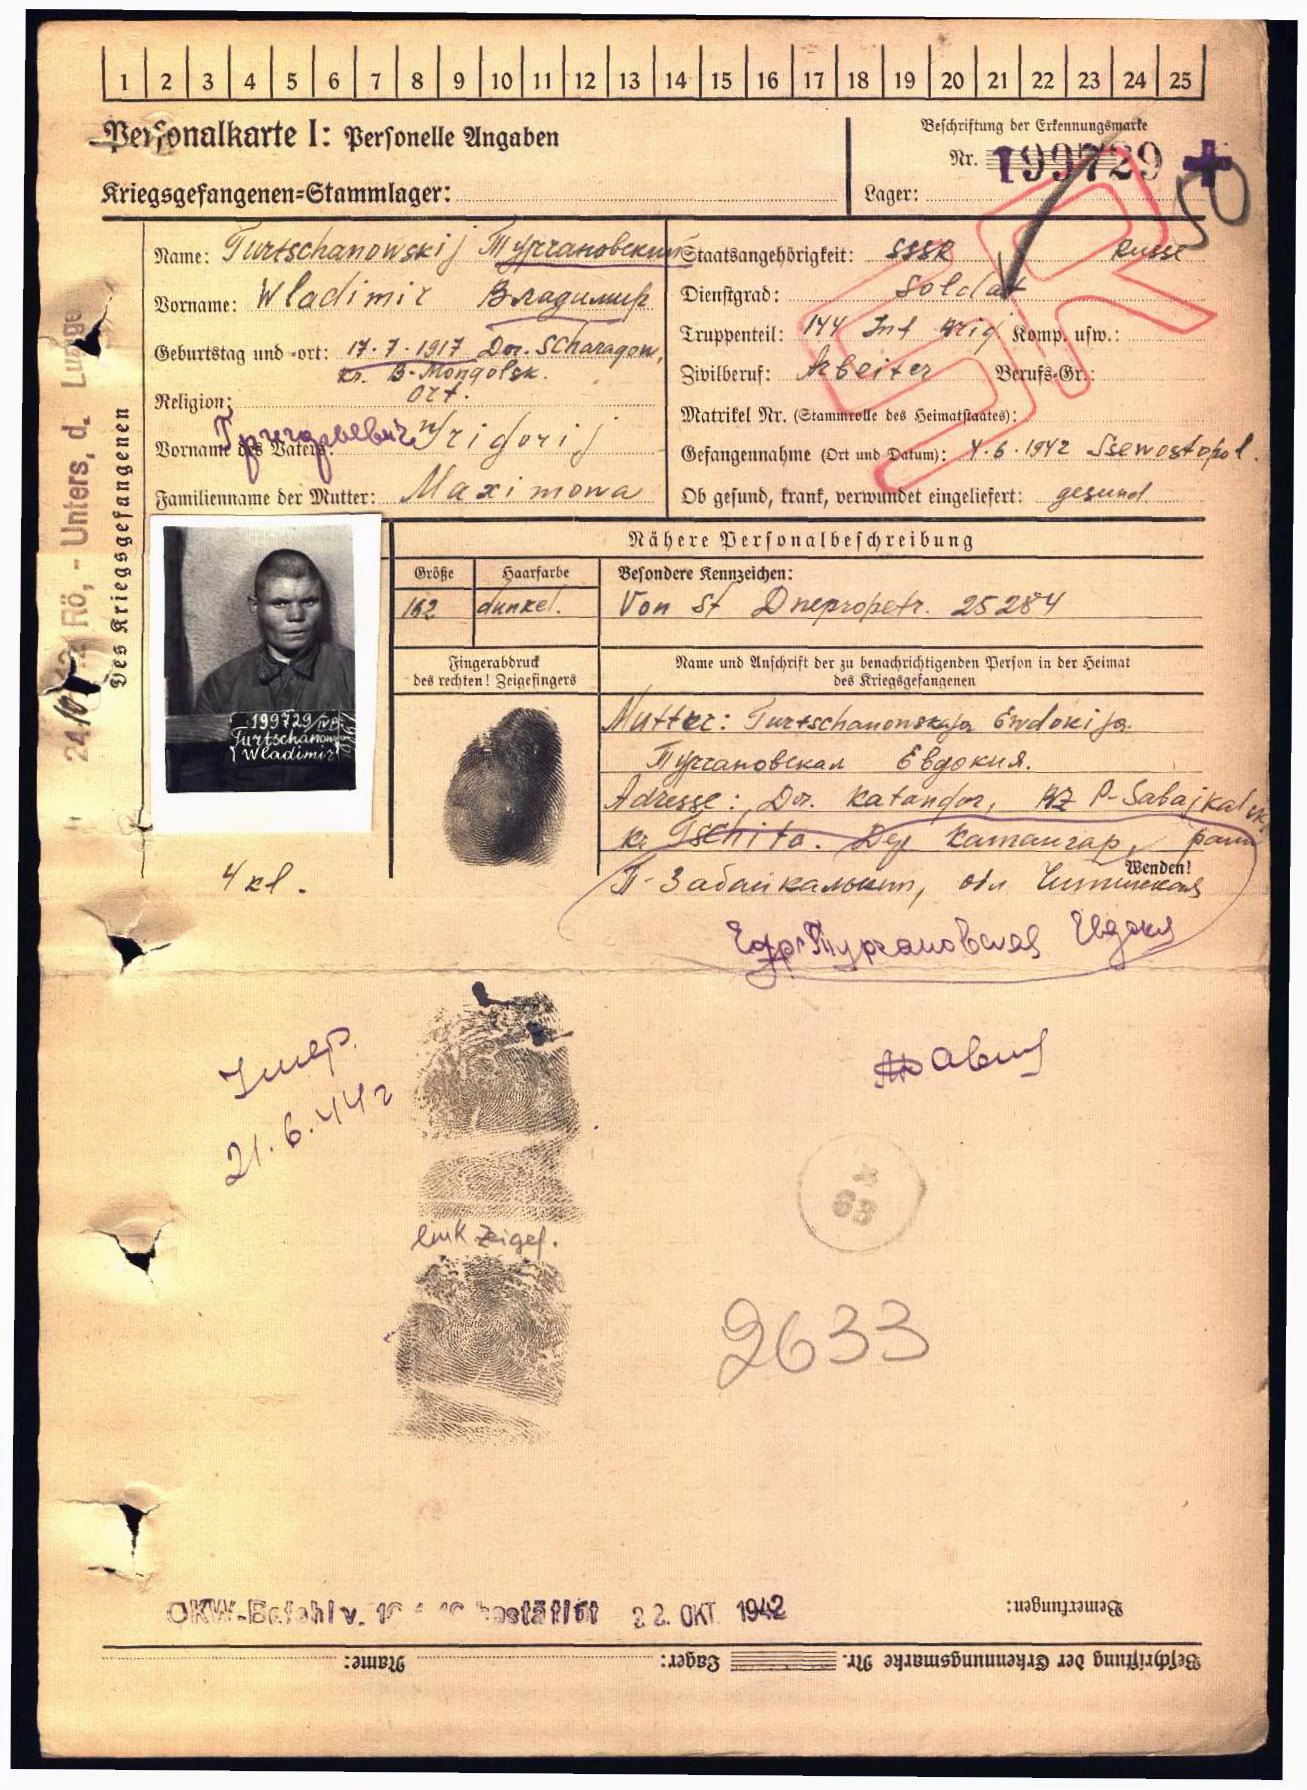 1 2 3 4 5 6 7 8 9 10 11 12 13 14 15 16 17 18 19 20 21 22 23 24 25
Personalkarte I: Personelle Angaben
Beschriftung der Erkennungsmarke
Nr. 199729
Kriegsgefangenen-Stammlager:
Lager:
50
Des Kriegsgefangenen
Name: Turtschanowskij Турчановский
Vorname: Wladimir Владимир
Geburtstag und -ort: 17.7.1917 Dor. Scharagon,
kr. B-Mongolsk.
Religion: ort.
Григорьевич
Vorname des Vaters: Grigorij
Familienname der Mutter: Maximowa
Staatsangehörigkeit: SSSR Russe
Dienstgrad: Soldat
Truppenteil: 144 Inf Brig Komp. usw.:
Zivilberuf: Arbeiter Berufs-Gr.:
Matrikel Nr. (Stammrolle des Heimatstaates):
Gefangennahme (Ort und Datum): 4.6.1942 Ssewostopol.
Ob gesund, krank, verwundet eingeliefert: gesund
24.10.42 Rö, - Unters, d. Lunge
Nähere Personalbeschreibung
Größe Haarfarbe Besondere Kennzeichen:
162 dunkel. Von St Dnepropetr. 25284
Fingerabdruck
des rechten! Zeigefingers
Name und Anschrift der zu benachrichtigenden Person in der Heimat
des Kriegsgefangenen
199729/IVB
Turtschanow
Wladimir
Mutter: Turtschanonskaja Ewdokija.
Турчановская Евдокия.
Adresse: Dor. Katangor, RZ P-Sabajkalsk
kr Tschita. Дер Катангар, раин
Wenden!
П-Забайкальский, обл Читинская
4 kl.
Турчановская Евдокия
Умер.
21.6.44г
link Zeigef.
63
2633
OKW-Befehl v. bestätigt 22. OKT. 1942
Bemerkungen:
Beschriftung der Erkennungsmarke Nr. Lager: Name: